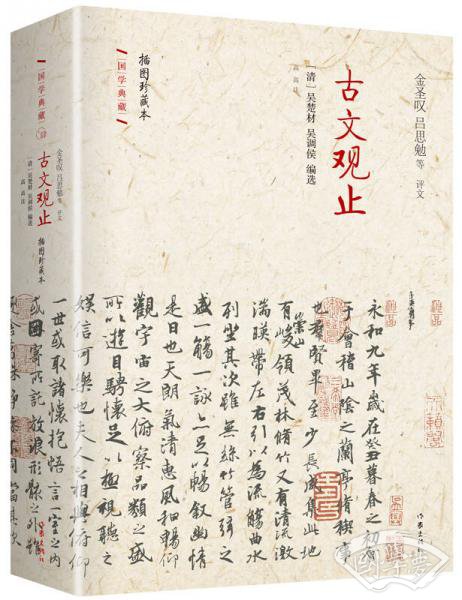 金圣叹 吕思勉 等 评文
古文观止
[清] 吴楚材 吴调侯 编选
插图珍藏本
国学典藏
永和九年歲在癸丑暮春之初會
于會稽山陰之蘭亭脩稧事
也羣賢畢至少長咸集此地
有崇山峻領茂林脩竹又有清流激
湍暎帶左右引以為流觴曲水
列坐其次雖無絲竹管弦之
盛一觴一詠亦足以暢敘幽情
是日也天朗氣清惠風和暢仰
觀宇宙之大俯察品類之盛
所以遊目騁懷足以極視聽之
娛信可樂也夫人之相與俯仰
一世或取諸懷抱悟言一室之內
或因寄所託放浪形骸之外雖
不同當其欣
作家出版社
国学典藏
金圣叹 吕思勉 等 评文
古文观止
[清] 吴楚材 吴调侯 编选
插图珍藏本